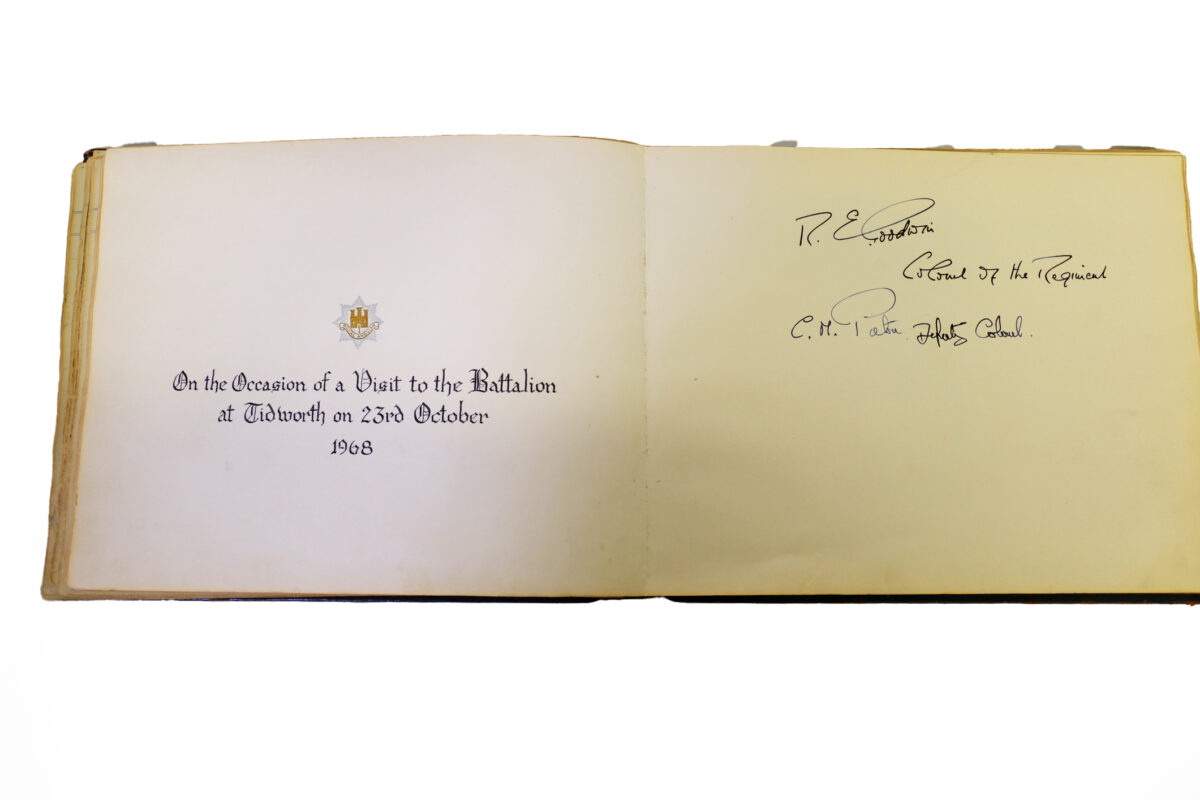 On the Occasion of a Visit to the Battalion
at Tidworth on 23rd October
1968
R. E. Goodwin
Colonel of the Regiment
C. M. Paton Deputy Colonel.